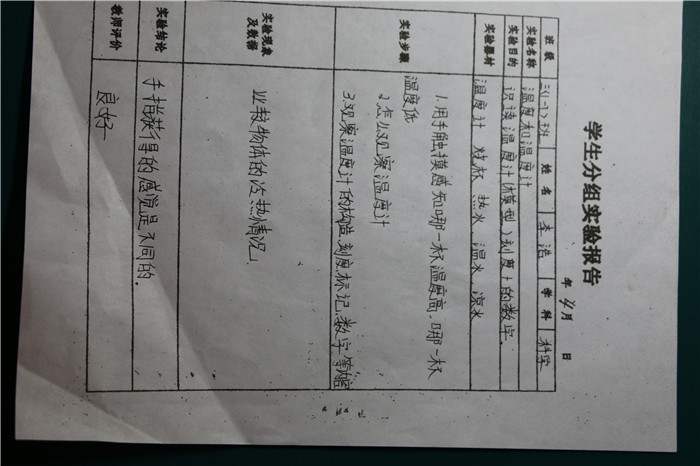 学生分组实验报告
年 4月 日
班级 三(1-1)班 姓名 李浩 学科 科学
实验名称 温度和温度计
实验目的 识读温度计(模型)刻度上的数字.
实验器材 温度计 烧杯 热水 温水 凉水
实验步骤 1.用手触摸感知哪一杯温度高、哪一杯
温度低
2.怎么观察温度计
3.观察温度计的构造刻度.标记.数字等
实验现象及数据 物体的冷热情况
实验结论 手指获得的感觉是不同的.
教师评价 良好